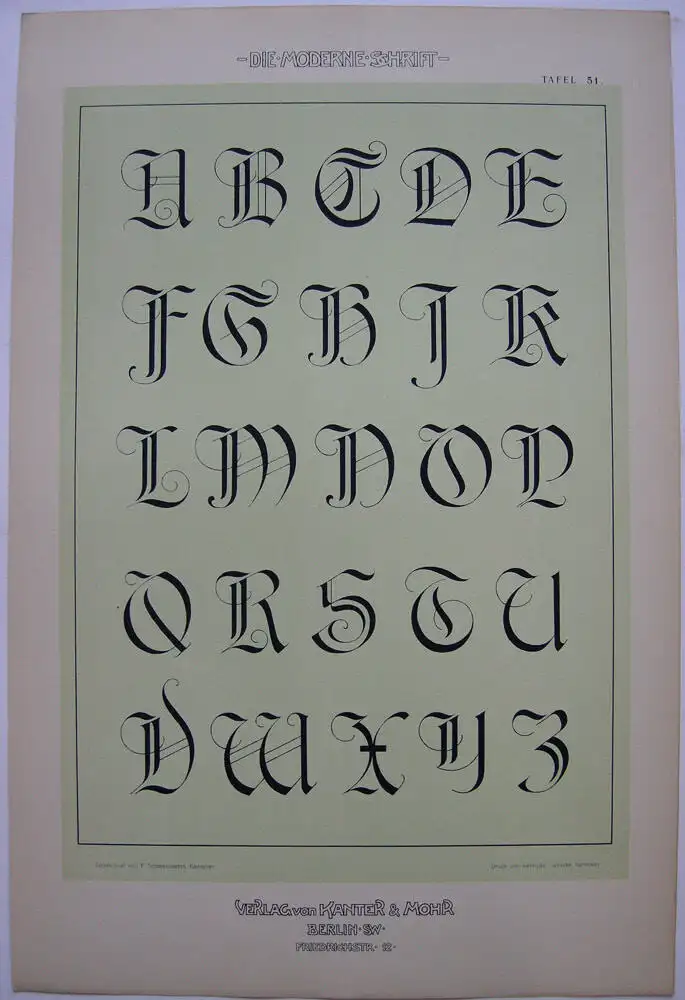 -DIE·MODERNE·SCHRIFT-
TAFEL 51.
A B C D E
F G H J K
L M N O P
Q R S T U
V W X Y Z
VERLAG von KANTER & MOHR
BERLIN·SW·
FRIEDRICHSTR· 12·